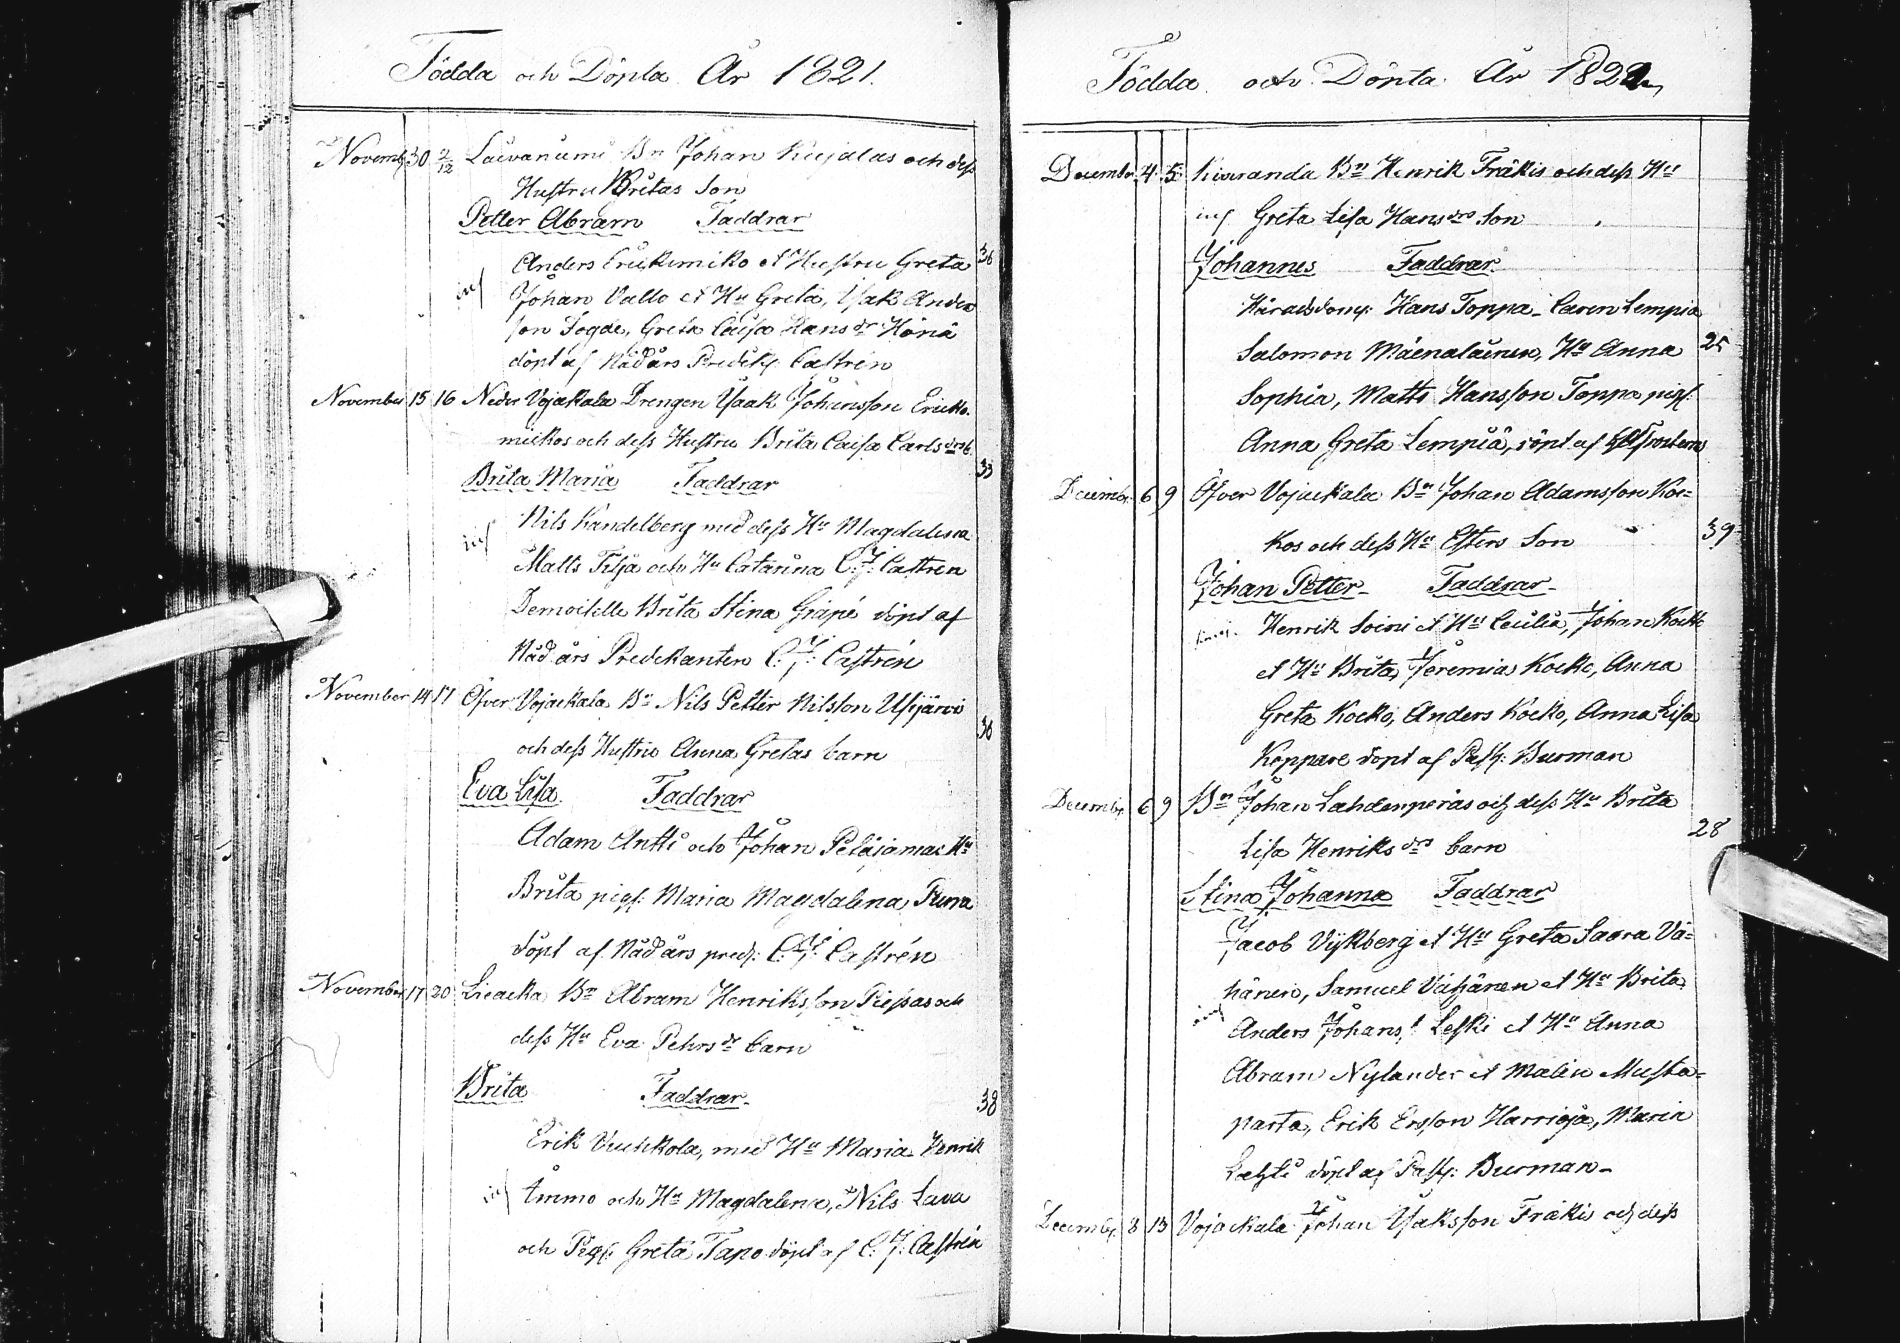 Födda och Döpta År 1821.
Novemb 30 2/12 Laivaniemi Bn Johan Kujalas och dess
Hustru Britas Son
Petter Abram Faddrar
Anders Erickimiko et Hustru Greta 36
inf Johan Vallo et Hu Greta, Isak Anders
son Fogde, Greta Caisa Hansdr Hörnä
döpt af Nådårs Predik: Castrén
November 15 16 Neder Vojakala Drengen Isaak Johansson Ericki
miikos och dess Hustru Brita Caisa Carlsdrs b. 33
Brita Maria Faddrar
Nils Kandelberg med dess Hu Magdalena
inf Matts Filja och Hu Catarina C: J: Castren
Demoiselle Brita Stina Grapé döpt af
Nåd års Predikanten C: J: Castrén
November 14 17 Öfver Vojackala Bn Nils Petter Nilsson Usijärvi 30
och dess Hustru Anna Gretas barn
Eva Lisa Faddrar
Adam Antti och Johan Peläjamas Hu
Brita pig: Maria Magdalena Furra
döpt af Nåd års pred: C: J: Castrén
November 17 20 Lieacka Bn Abram Henriksson Piessas och
dess Hu Eva Pehrsdr barn
Brita Faddrar 38
Erik Vuukkola, med Hu Maria Henrik
inf Ämmo och Hu Magdalena, Nils Lava
och Pig: Greta Tapo döpt af C: J: Castrén
Födda och Döpta År 1821
December 4 5 Kiviranda Bn Henrik Fräkis och dess Hu
inf Greta Lisa Hansdrs Son
Johannes Faddrar
Häradsdom: Hans Toppa Caren Lempia
Salomon Mäenalainen, Hu Anna 25
Sophia, Matts Hansson Toppa pig:
Anna Greta Lempiä, döpt af
Decemb: 6 9 Öfver Vojackala Bn Johan Adamsson Koc=
kos och dess Hu Esters Son 39
Johan Petter Faddrar
Henrik Soini et Hu Cecilia, Johan Kocko
et Hu Brita, Jeremias Kocko, Anna
Greta Kocko, Anders Kocko, Anna Lisa
Koppare döpt af Past: Burman
Decemb: 6 9 Bn Johan Lahdenperäs och dess Hu Brita 28
Lisa Henriksdrs barn
Stina Johanna Faddrar
Jacob Vijkberg et Hu Greta Saara Vä=
hänen, Samuel Vähänen et Hu Brita
inf Anders Johans: Leski et Hu Anna
Abram Nylander et Malin Musta=
parta, Erik Ersson Harrioja, Maria
Lahti döpt af Past: Burman
Decemb: 8 13 Vojackala Johan Isaksson Fräkis och dess